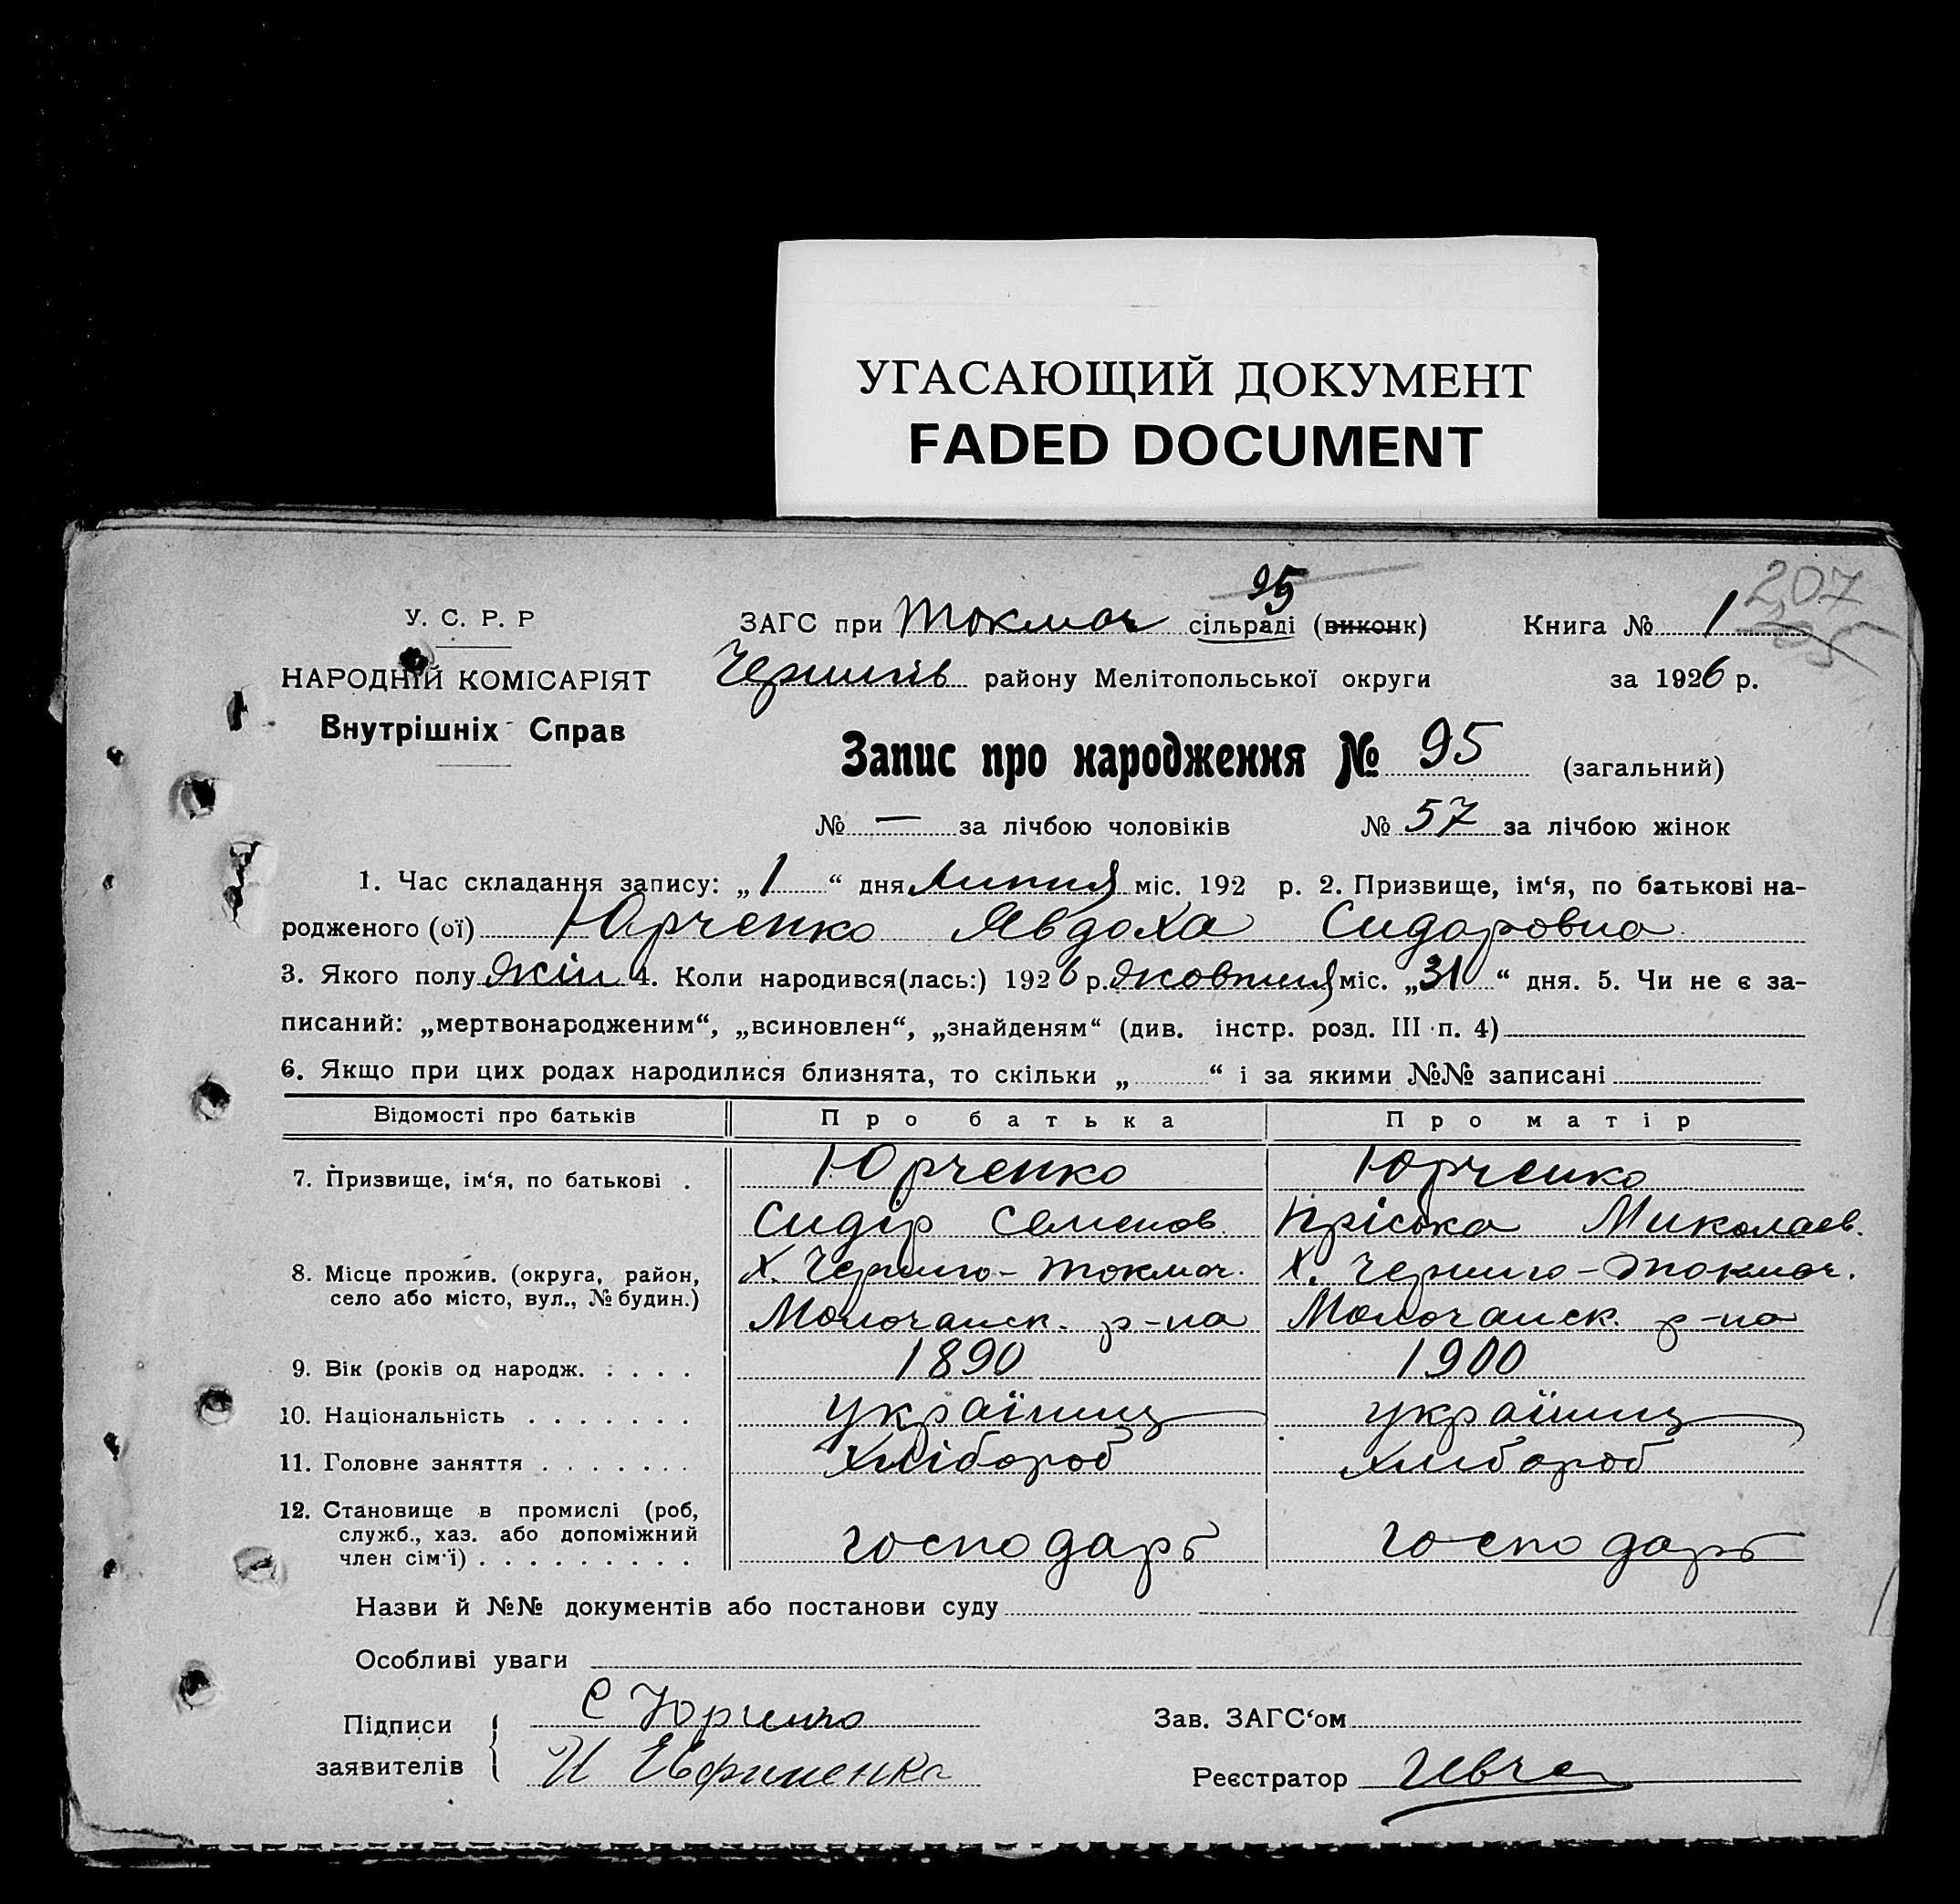 УГАСАЮЩИЙ ДОКУМЕНТ
FADED DOCUMENT
95
207
У. С. Р. Р
ЗАГС при Токмач сільраді (виконк)
Книга № 1
НАРОДНІЙ КОМІСАРІЯТ
Чернигів району Мелітопольської округи
за 1926 р.
Внутрішніх Справ
Запис про народження № 95 (загальний)
№ — за лічбою чоловіків № 57 за лічбою жінок
1. Час складання запису: „1“ дня липня міс. 192 р. 2. Призвище, ім‘я, по батькові на-
родженого (ої) Юрченко Явдоха Сидоровна
3. Якого полу жін 4. Коли народився(лась:) 1926 р. жовтня міс. „31“ дня. 5. Чи не є за-
писаний: „мертвонародженим“, „всиновлен“, „знайденям“ (див. інстр. розд. III п. 4)
6. Якщо при цих родах народилися близнята, то скільки „ “ і за якими №№ записані
Відомості про батьків Про батька Про матір
7. Призвище, ім‘я, по батькові . Юрченко Юрченко
Сидір Семенов. Пріська Миколаев.
8. Місце прожив. (округа, район, Х. Черниго-Токмач. Х. Черниго-Токмач.
село або місто, вул., № будин.) Молочанск. р-на Молочанск. р-на
9. Вік (років од народж. . . . . 1890 1900
10. Національність . . . . . . . українц українц
11. Головне заняття . . . . . . . хлібороб хлибороб
12. Становище в промислі (роб,
служб., хаз. або допоміжний
член сім‘ї) . . . . . . . . . . господарь господарь
Назви й №№ документів або постанови суду
Особливі уваги
Підписи С Юрченко Зав. ЗАГС‘ом
заявителів И Евфименка Реєстратор